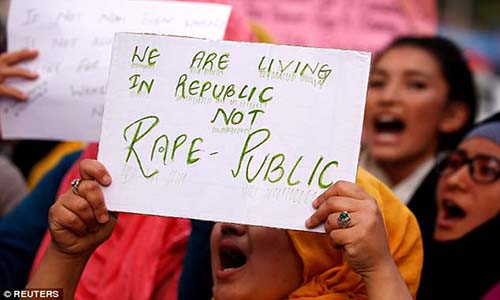 WE ARE LIVING
IN REPUBLIC
NOT
RAPE-PUBLIC
© REUTERS